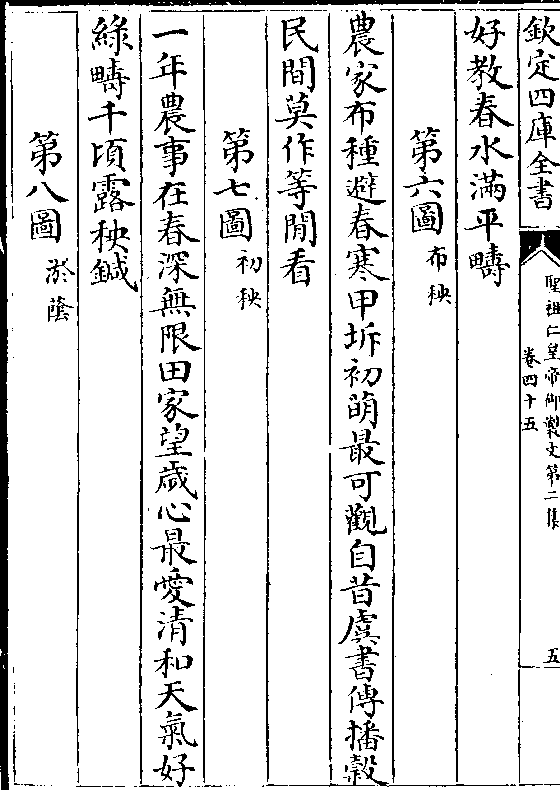 欽定四庫全書
聖祖仁皇帝御製文第二集
卷四十五
五
好教春水滿平疇
第六圖 布秧
農家布種避春寒甲坼初萌最可觀自昔虞書傳播穀
民間莫作等閒看
第七圖 初秧
一年農事在春深無限田家望歲心最愛清和天氣好
綠疇千頃露秧鍼
第八圖 淤蔭